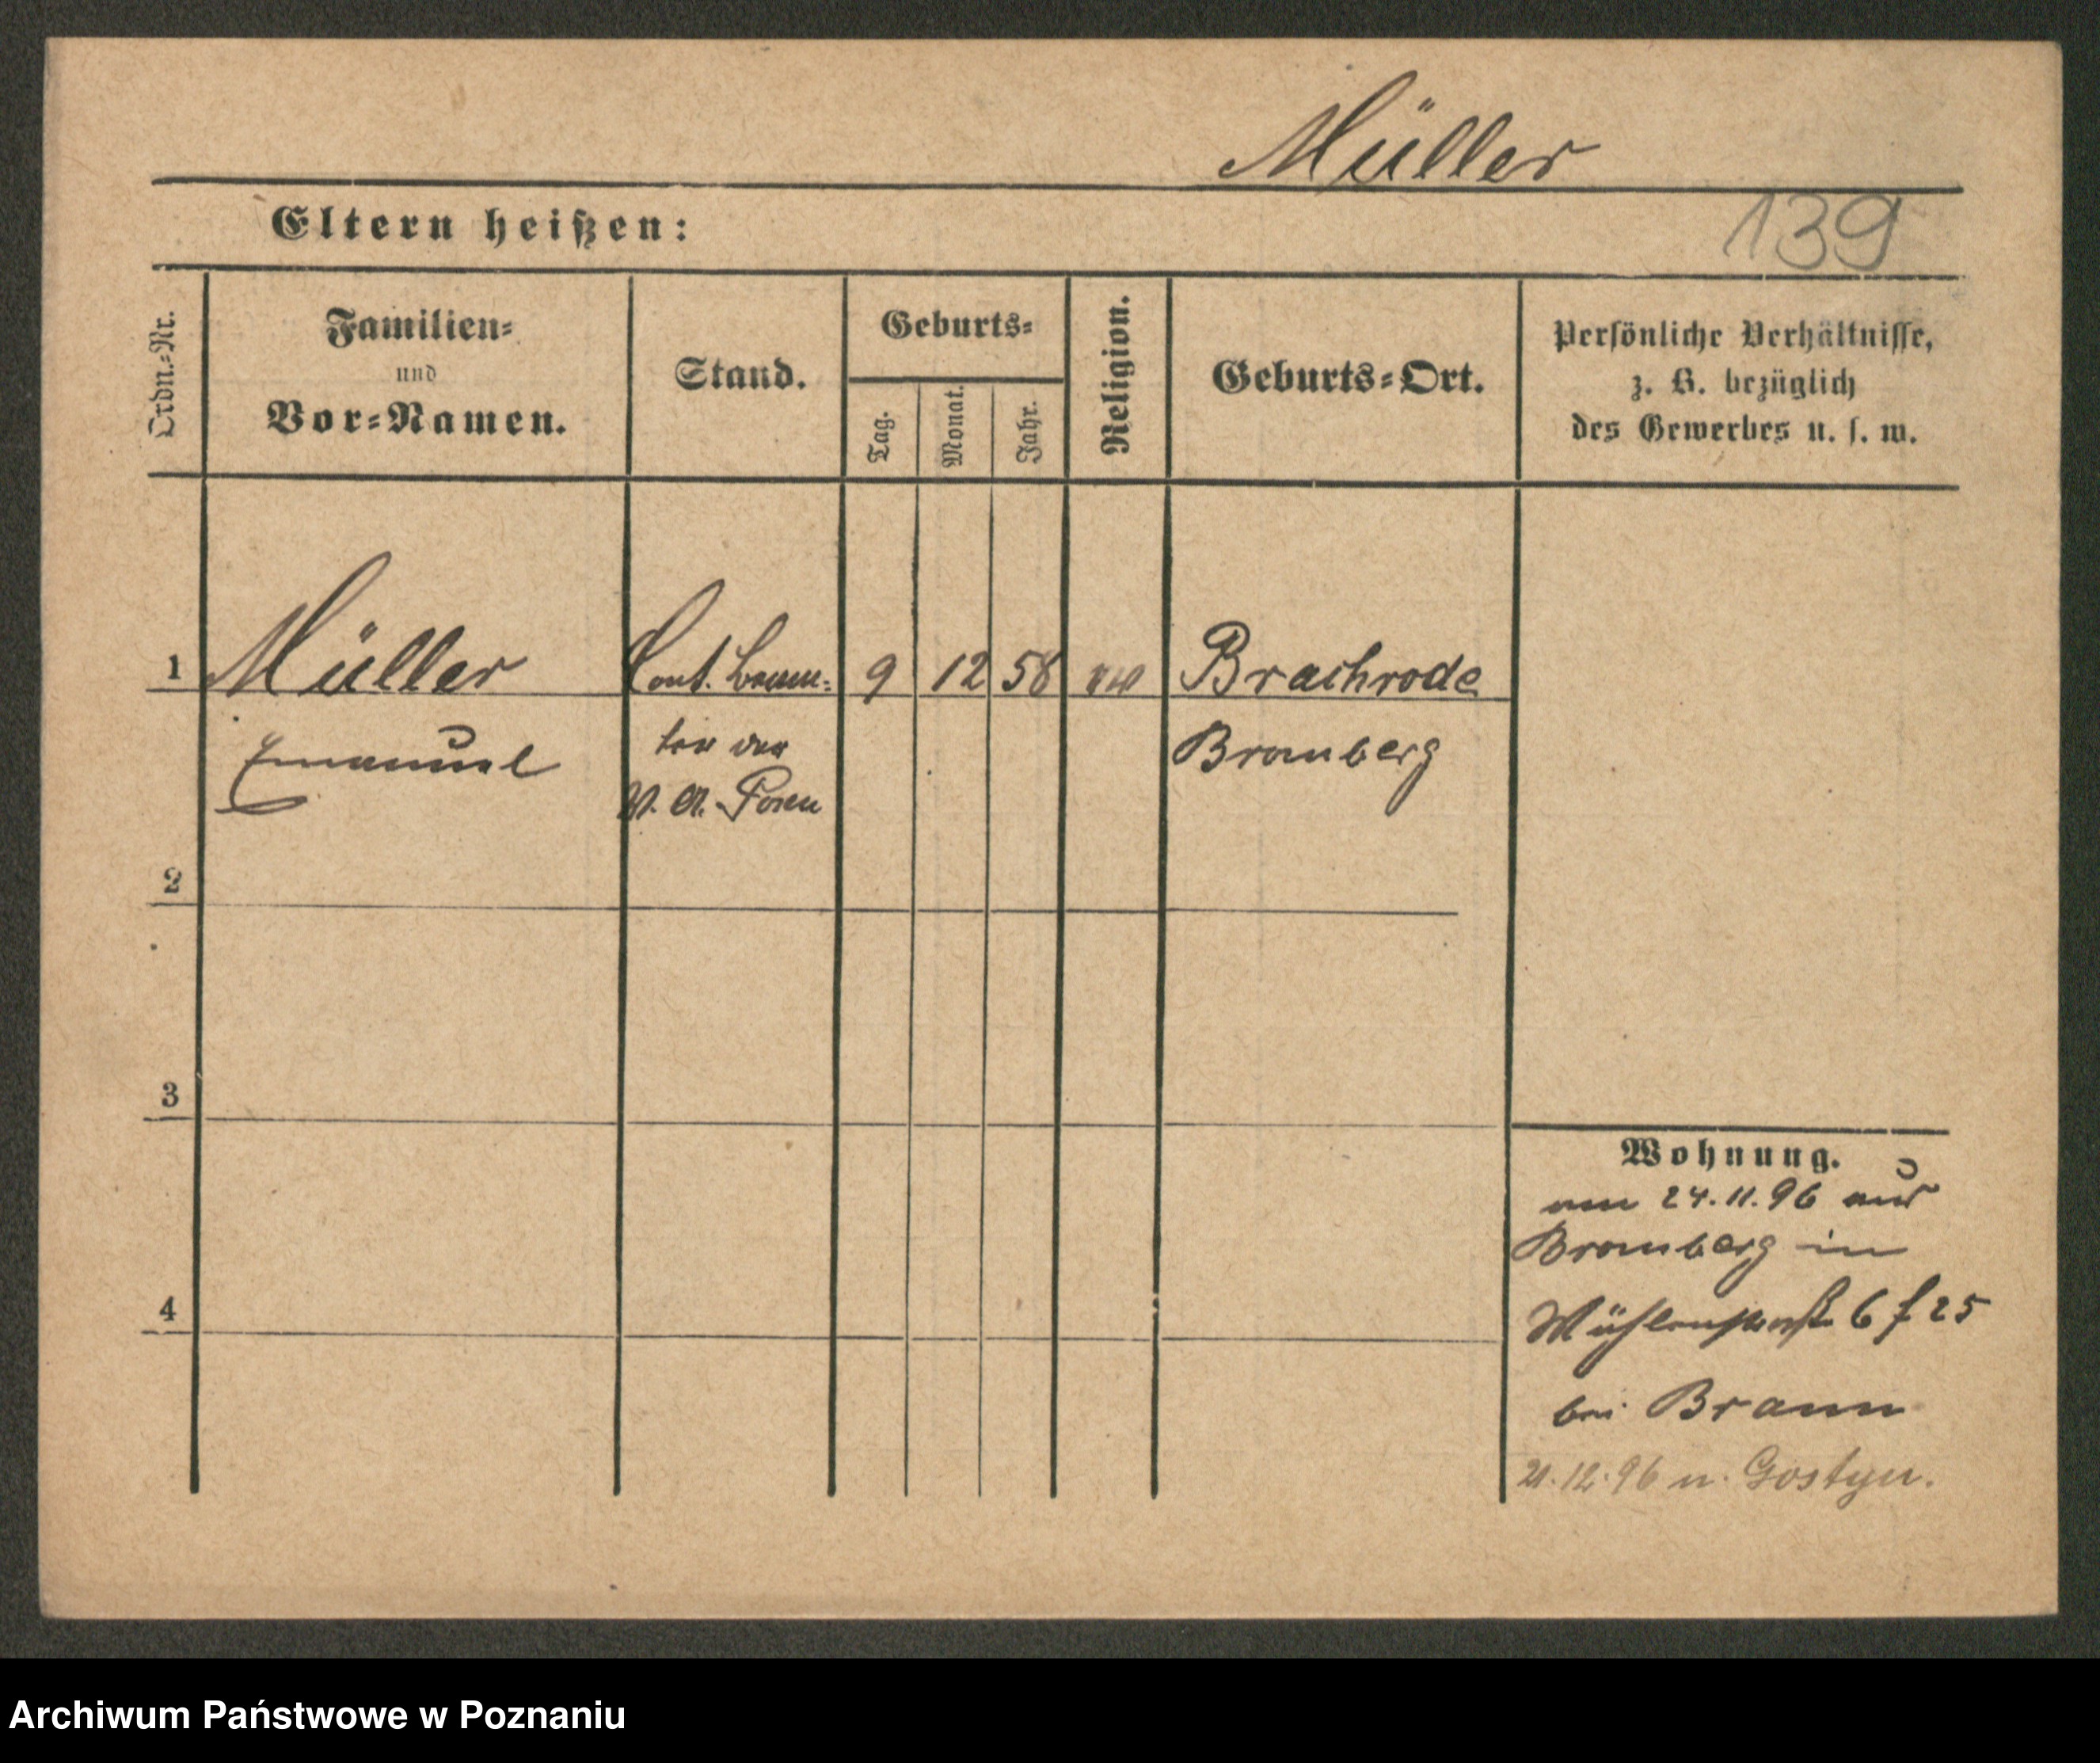 Müller
139
Eltern heißen:
Ordn.-Nr.
Familien-
und
Vor-Namen.
Stand.
Geburts-
Tag.
Monat.
Jahr.
Religion.
Geburts-Ort.
Persönliche Verhältnisse,
z. B. bezüglich
des Gewerbes u. s. w.
1 Müller Cont. beam- 9 12 58 Brachrode
Emanuel ter der Bromberg
V. A. Posen
2
3
4
Wohnung.
am 24.11.96 aus
Bromberg in
Mühlenstraße 6 f 25
bei Braun
21.12.96 n. Gostyn.
Archiwum Państwowe w Poznaniu